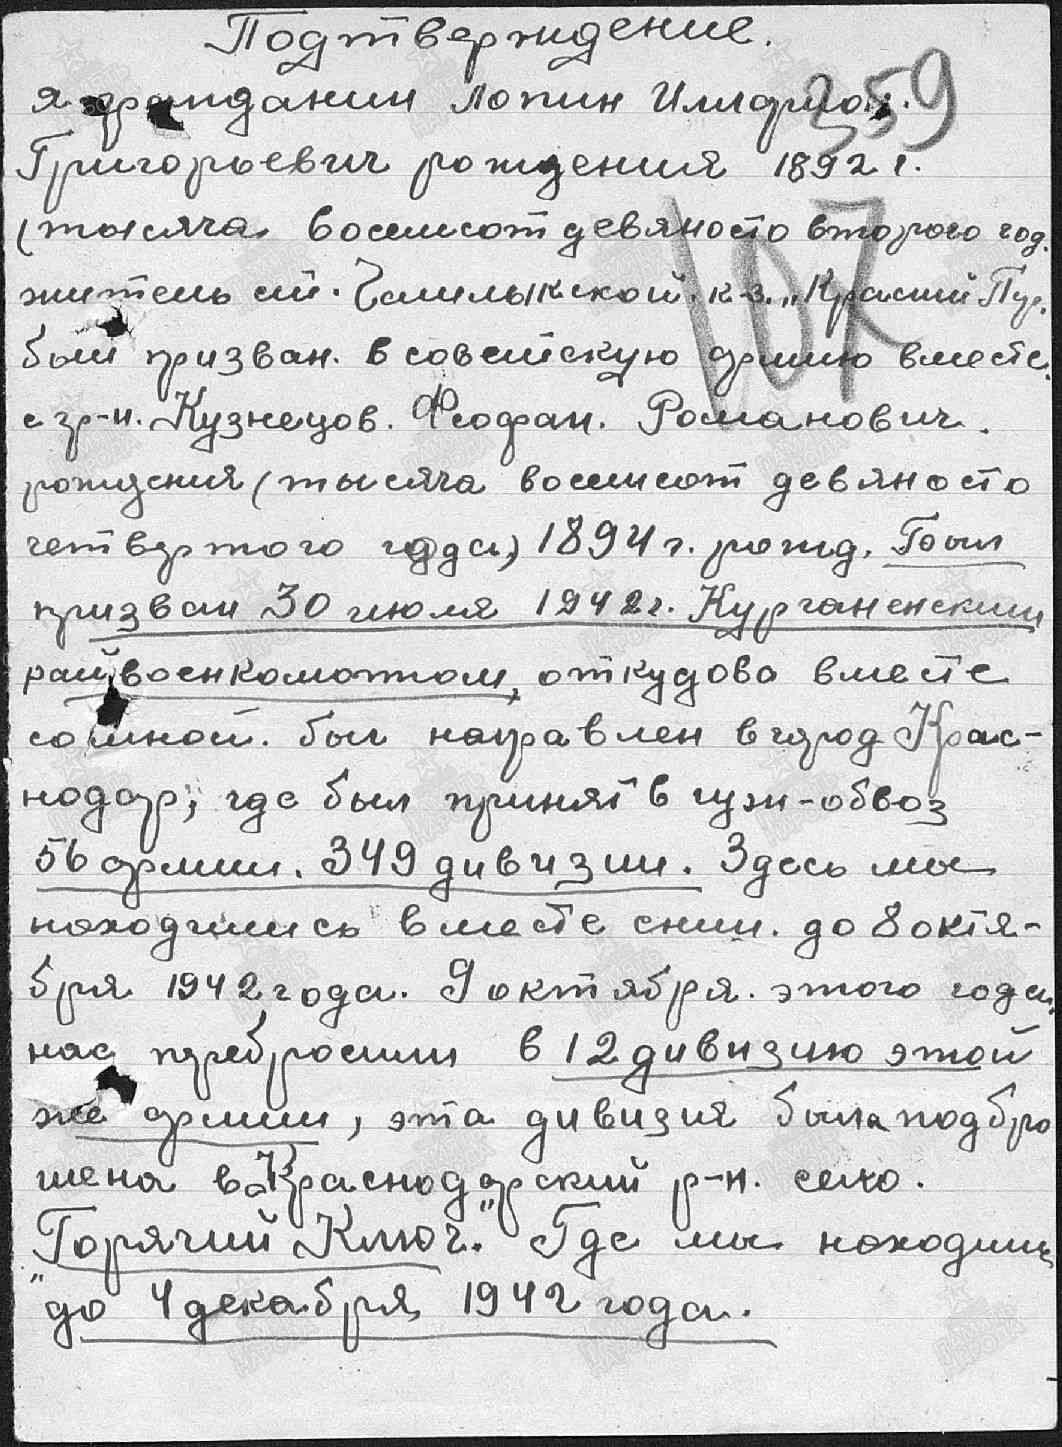 Подтверждение.
359
Я гражданин Лопин Илларион.
Григорьевич рождения 1892 г.
(тысяча восемсот девяносто второго год.
107
житель ст. Чамлыкской. к-з. „Красный Пур.
был призван. в советскую армию вместе.
с гр-н. Кузнецов. Феофан. Романович.
рождения (тысяча восемсот девяносто
четвертого года) 1894 г. рожд. Был
призван 30 июля 1942 г. Курганенским
райвоенкоматом, откудова вместе
со мной. был направлен в город Крас-
нодар, где был принят в гуж-обвоз
56 армии. 349 дивизии. Здесь мы
находились вместе с ним. до 8 октя-
бря 1942 года. 9 октября. этого года,
нас перебросили в 12 дивизию этой
же армии, эта дивизия была подбро
шена в Краснодарский р-н. село.
"Горячий Ключ." Где мы находились
до 4 декабря 1942 года.